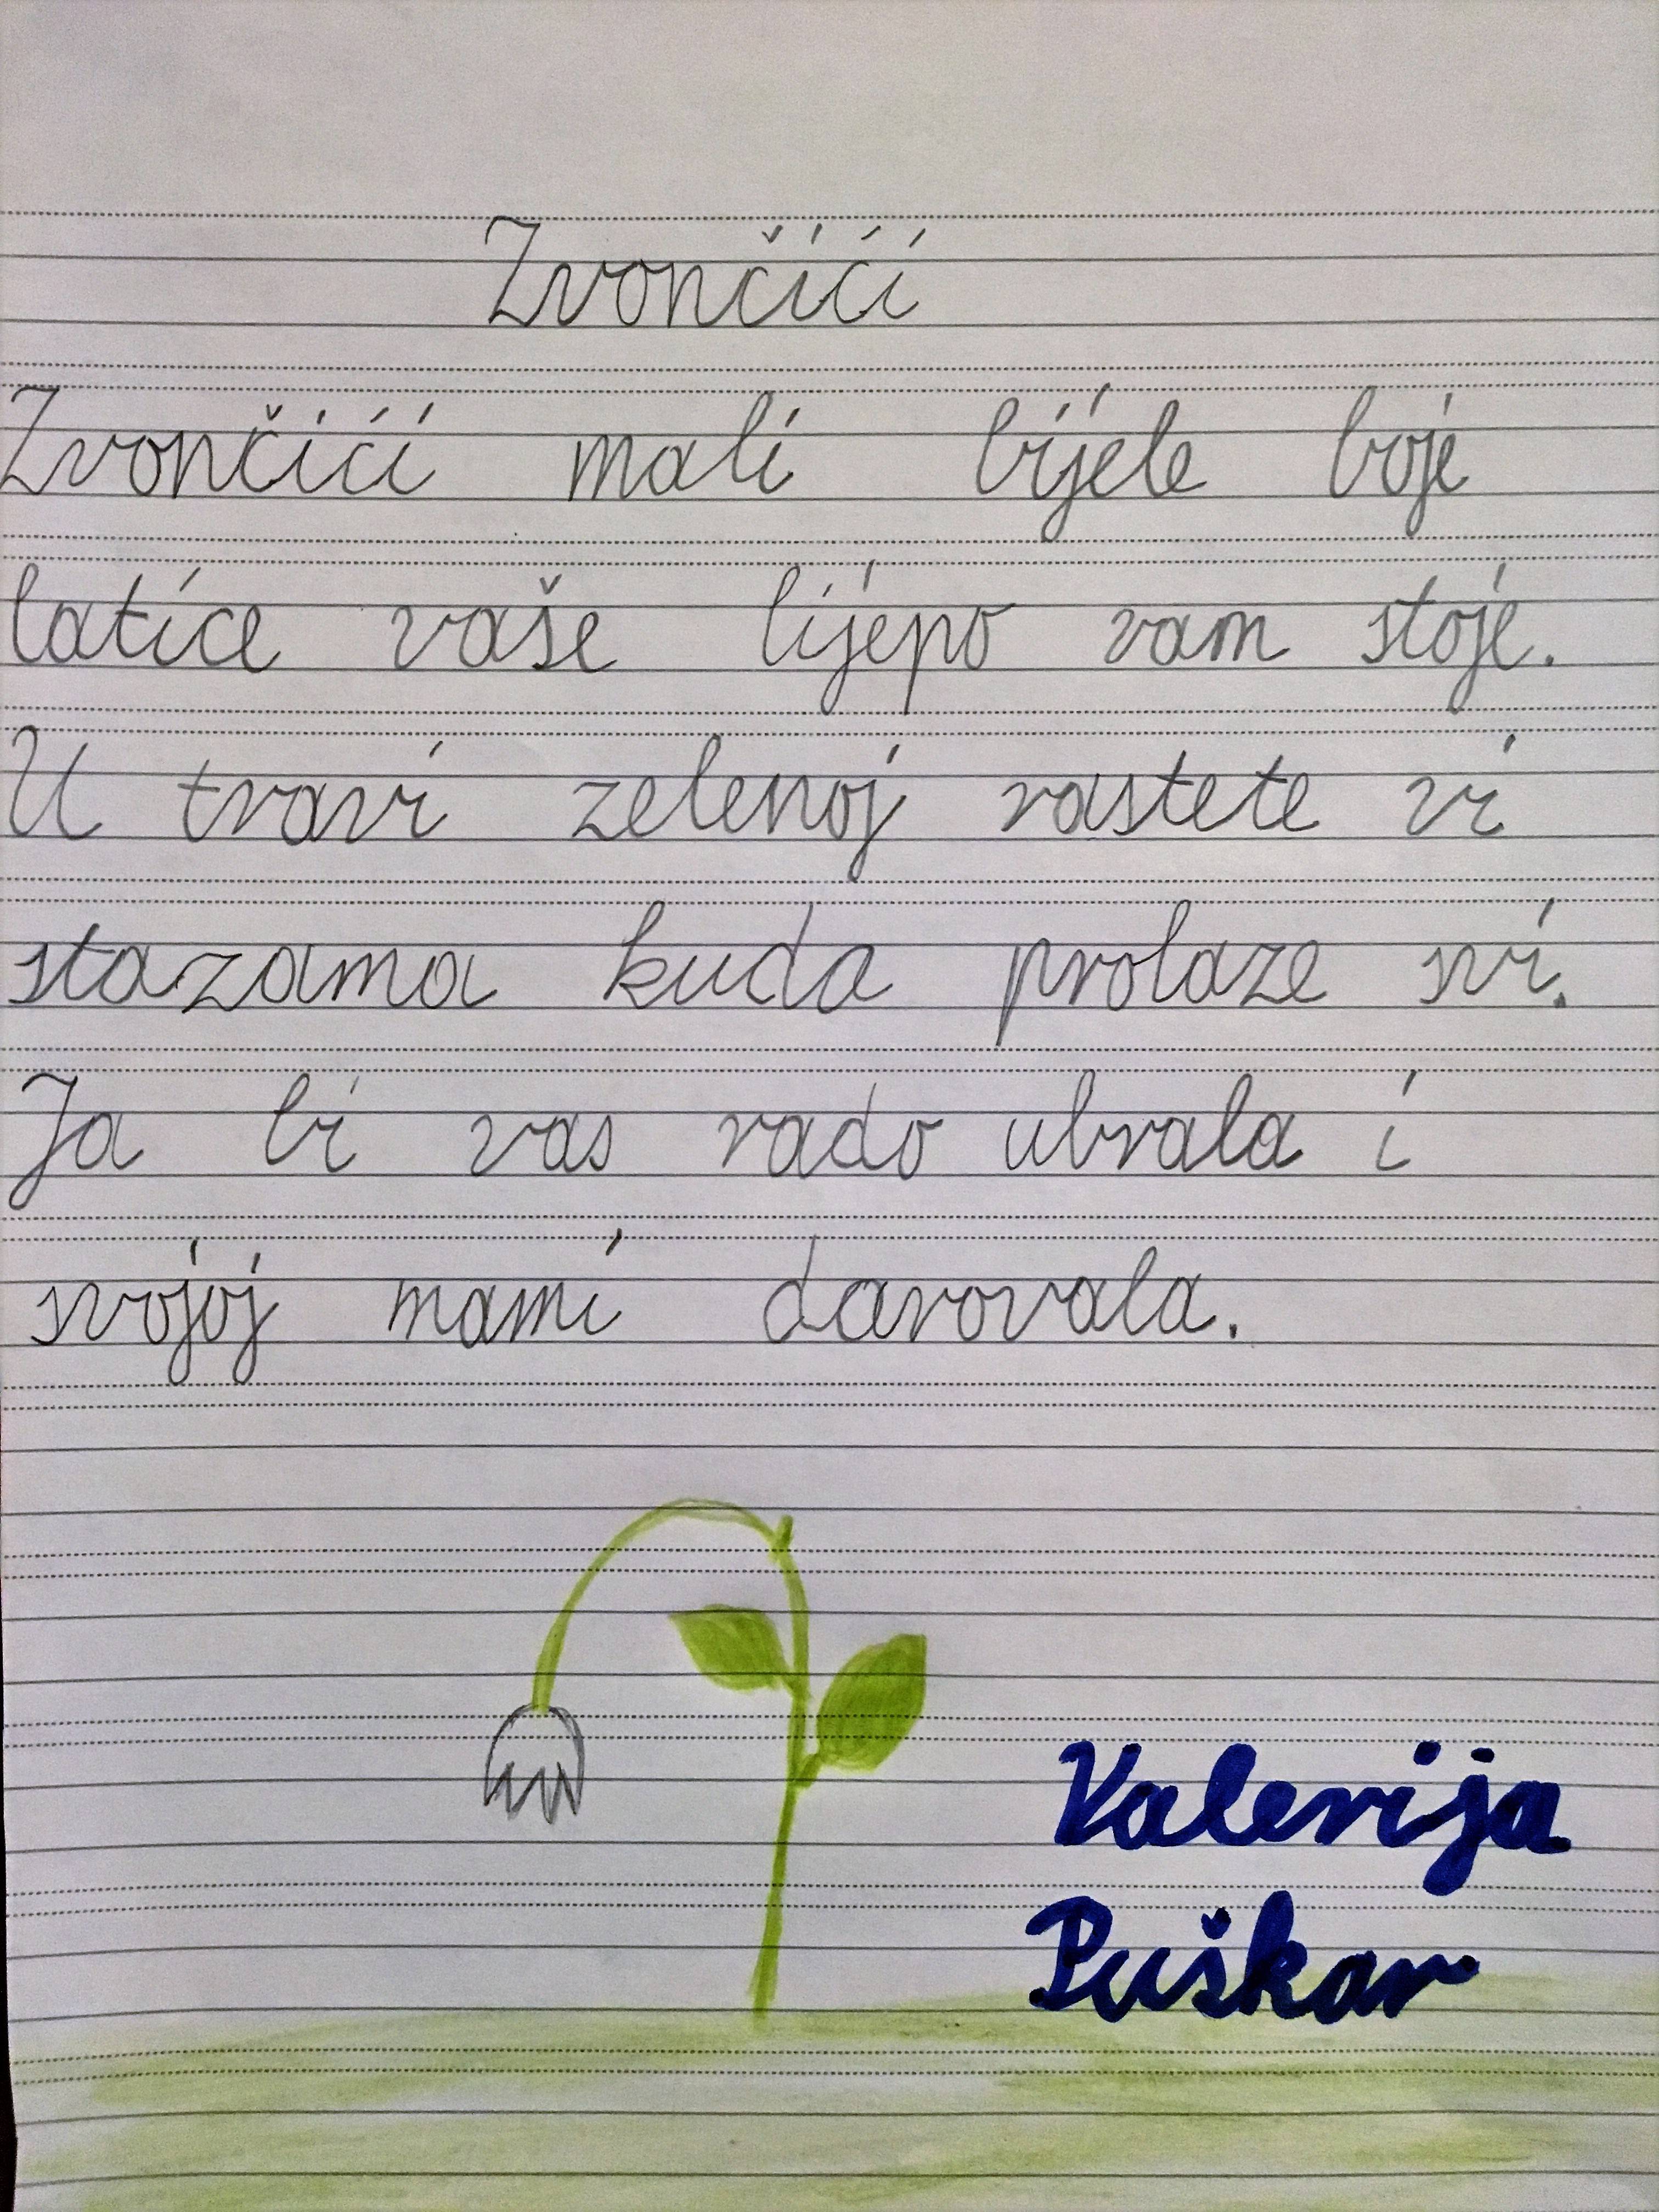 Zvončići
Zvončići mali bijele boje
latice vaše lijepo vam stoje.
U travi zelenoj rastete vi
stazama kuda prolaze svi.
Ja bi vas rado ubrala i
svojoj mami darovala.
Valerija
Puškar